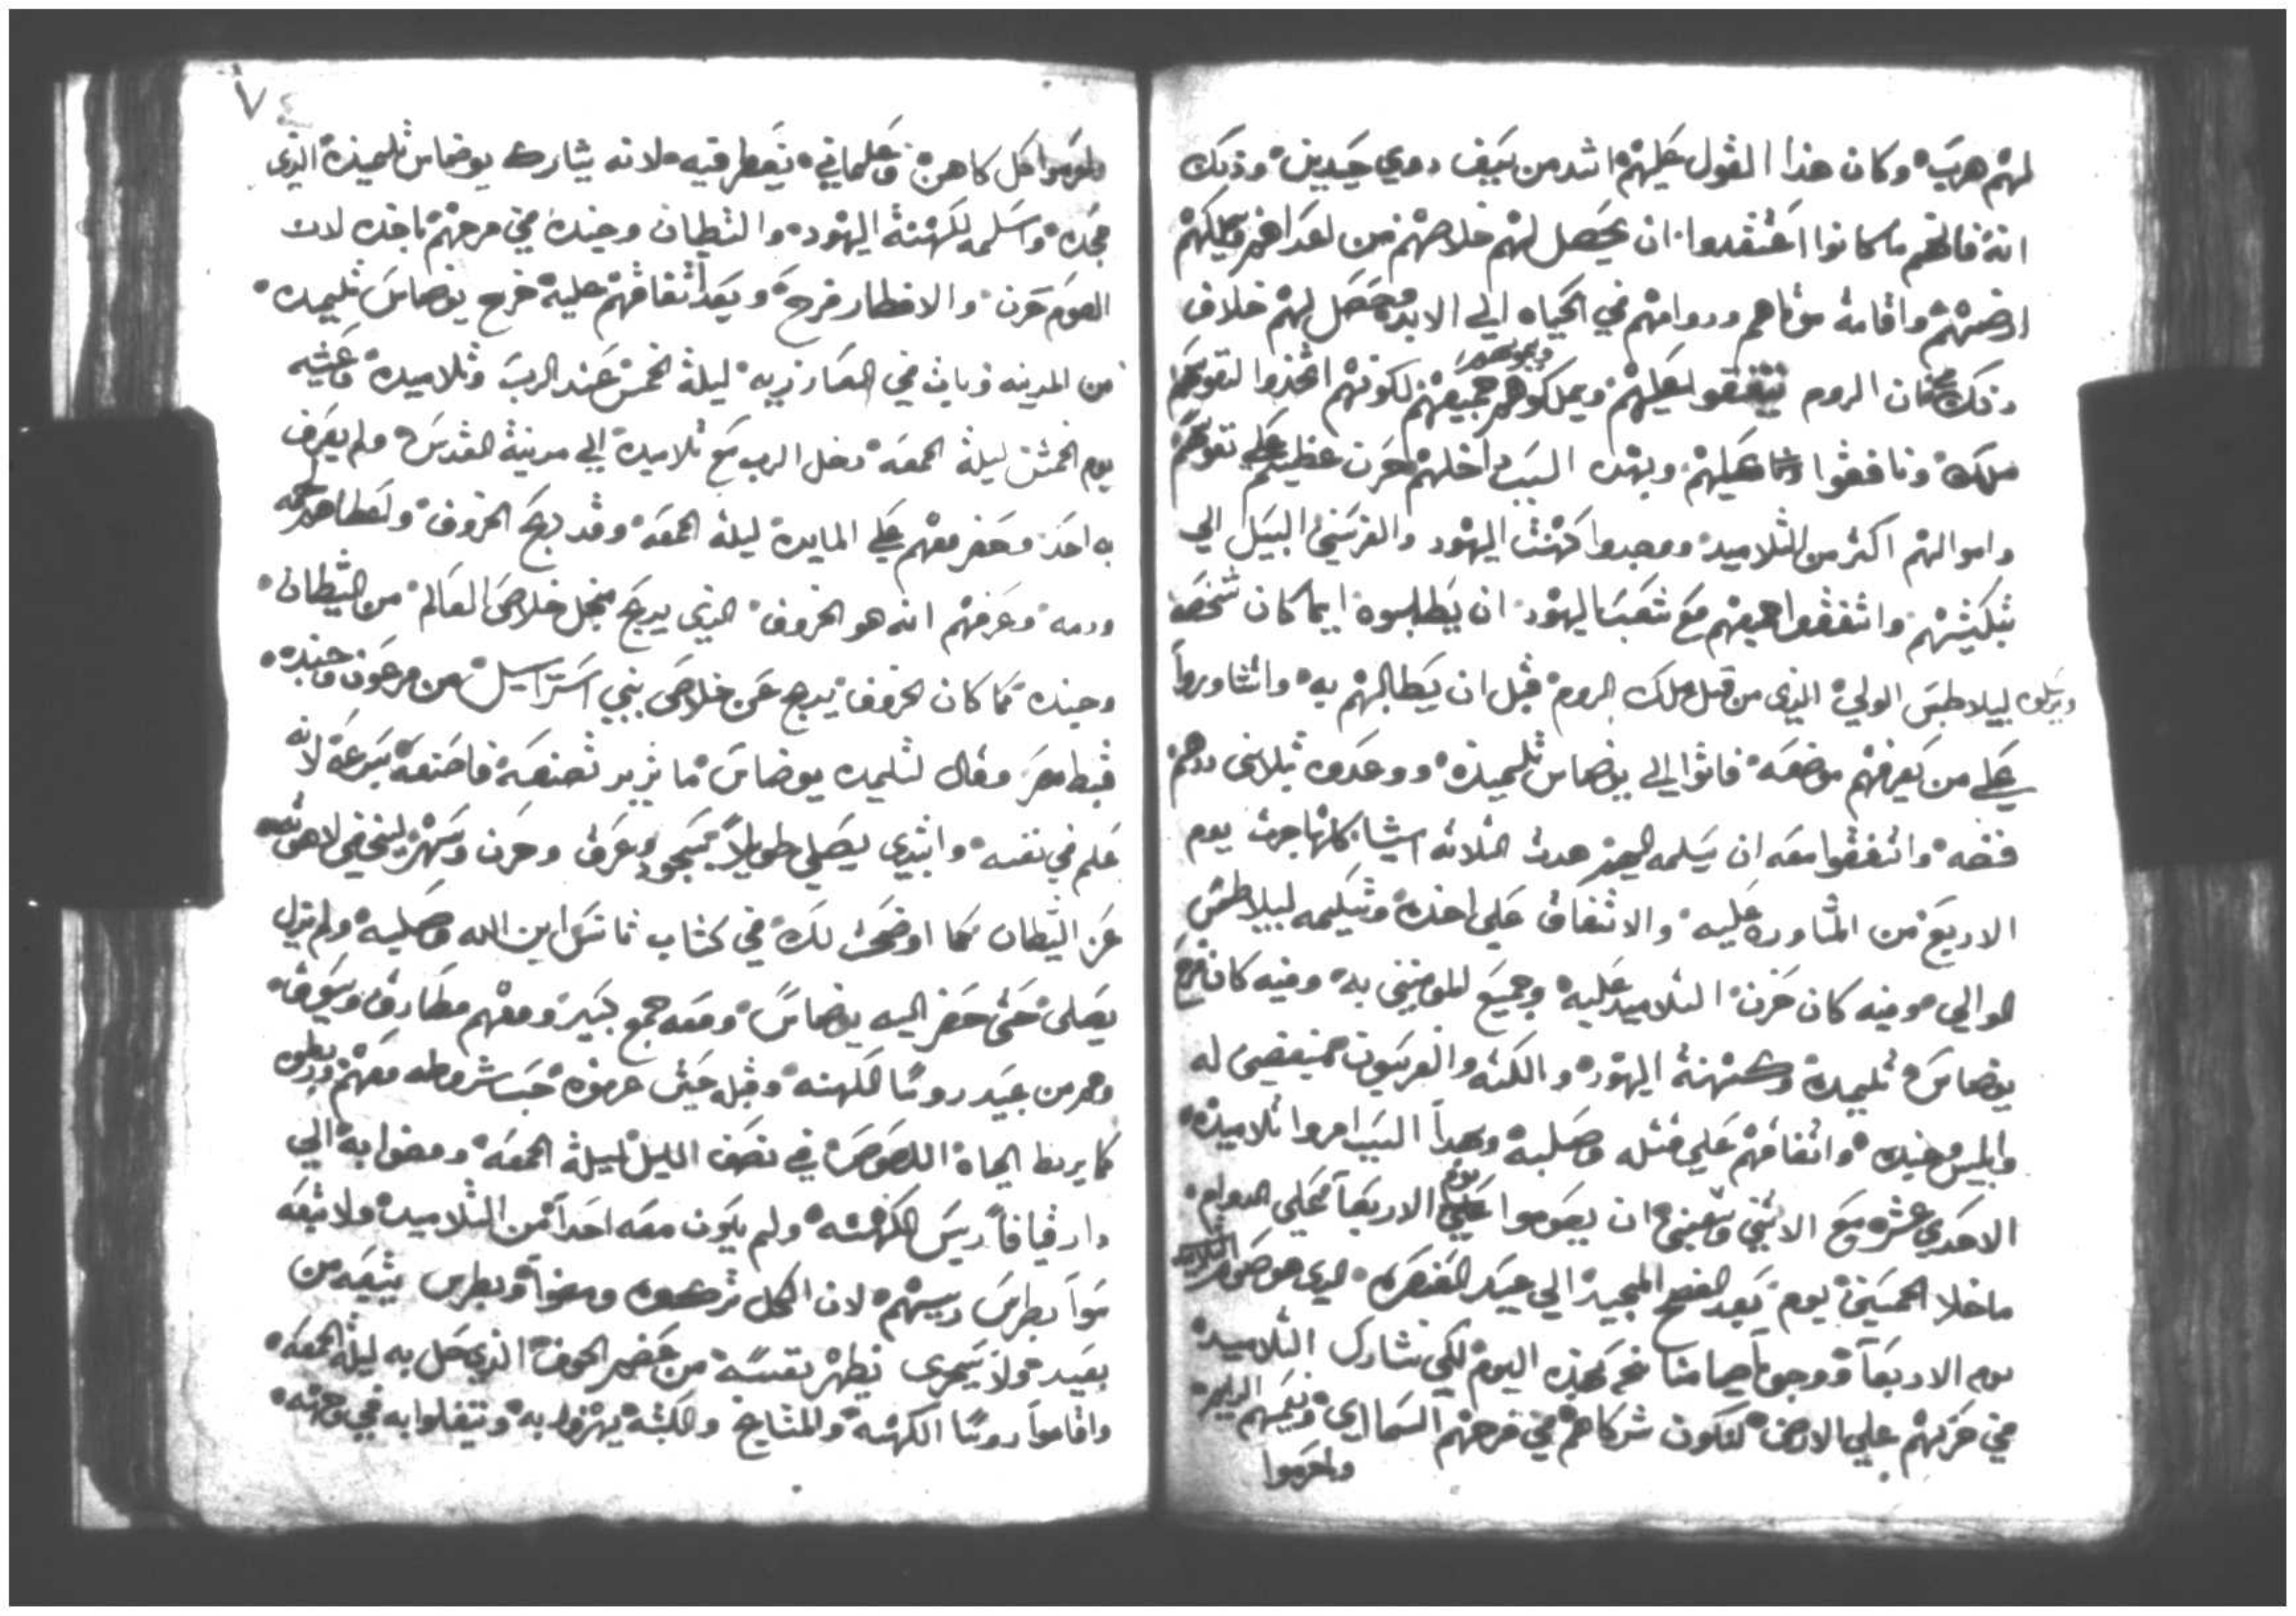 لهم هرب وكان هذا القول عليهم اشد من سيف دوي حدين وذلك
انه فاتهم ما كانوا اعتقدوا ان يحصل لهم خلاصهم من اعداهم وتملكهم
ارضهم واقامة موتاهم ودوامهم في الحياه الي الابد وحصل لهم خلاف
ذلك ان الروم يتفقوا عليهم ويملكوهم جميعهم لكونهم اتخذوا لنفوسهم
ملك ونافقوا عليهم وبهذه السبب داخلهم حزن عظيم علي نفوسهم
واموالهم اكثر من التلاميد ووجدوا كهنت اليهود والفرسين السبيل الي
تبكيتهم واتفقوا جميعهم مع شعب اليهود ان يطلبوه ايما كان شخصه
لبيلاطس الوالي الذي من قبل ملك الروم قبل ان يطالبهم به واتشاوروا
علي من يعرفهم موضعه فاتوا الي يوضاس تلميذه ووعدوه بتلاتين درهم
فضه واتفقوا معه ان يسلمه اليهم هدة التلاته اشيا كلها جرت يوم
الاربع من المشاوره عليه والاتفاق علي اخذه وتسليمه لبيلاطس
الوالي وفيه كان حزن التلاميد عليه وجميع المومنين به وفيه كان فرح
يوضاس تلميده وكهنة اليهود والكتبه والفريسيون مبغضين له
وابليس وجنده واتفاقهم علي قتله وصلبه وبهدا السبب امروا تلاميذه
الاحدي عشر مع الاتنين وسبعين ان يصوموا يوم الاربعا علي الدوام
ما خلا الخمسين يوم بعد الفصح المجيد الي عيد العنصره الذي هو صوم التلاميد
يوم الاربعا ووجوبا صيامنا نحن لهذه اليوم لكي نشارك التلاميد
في حزنهم علي الارض لنكون شركاهم في فرحهم السماوي ونعيمهم الدايم
واحرموا
واحرموا كل كاهن وعلماني يفطر فيه لانه يشارك يوضاس تلميذه الذي
جحده واسلمه لكهنة اليهود والشيطان وجنده في فرحهم باخده لان
الصوم حزن والافطار فرح وبعد اتفاقهم عليه خرج يوضاس تلميده
من المدينه وبات في العازريه ليلة الخمس عند الرب وتلاميده وعشية
يوم الخميس ليلة الجمعه دخل الرب مع تلاميده الي مدينة القدس ولم يعرف
به احد وحضر معهم علي المايده ليلة الجمعه وقد دبح الخروف واعطاهم لحمه
ودمه وعرفهم انه هو الخروف الذي يدبح من اجل خلاص العالم من الشيطان
وجنده كما كان الخروف يدبح عن خلاص بني اسراييل من فرعون وجنده
قبط مصر وقال لتلميده يوضاس ما تريد تصنعه فاصنعه بسرعه لانه
علم في نفسه وابتدي يصلي طويلا بسجود وعرق وحزن وسهر ليخفي لاهوته
عن الشيطان كما اوضحت لك في كتاب تانس ابن الله وصليبه ولم يزل
يصلي حتي حضر اليه يوضاس ومعه جمع كبير ومعهم مطارق وسيوف
وهم من عبيد روسا الكهنه وقبله حتي عرفوه حسب شروطه معهم وربطوه
كما يربط الحماه اللصوص في نصف الليل ليلة الجمعه ومضوا به الي
دار قيافا ريس الكهنه ولم يكون معه احدا من التلاميد ولا تبعه
سوا بطرس رييسهم لان الكل تركوه ومضوا وبطرس يتبعه من
بعيد ولا يتجري يظهر نفسه من عظم الخوف الذي حل به ليلة الجمعه
واقاموا روسا الكهنه والمشايخ والكتبه يهزوا به ويتفلوا به في وجهه